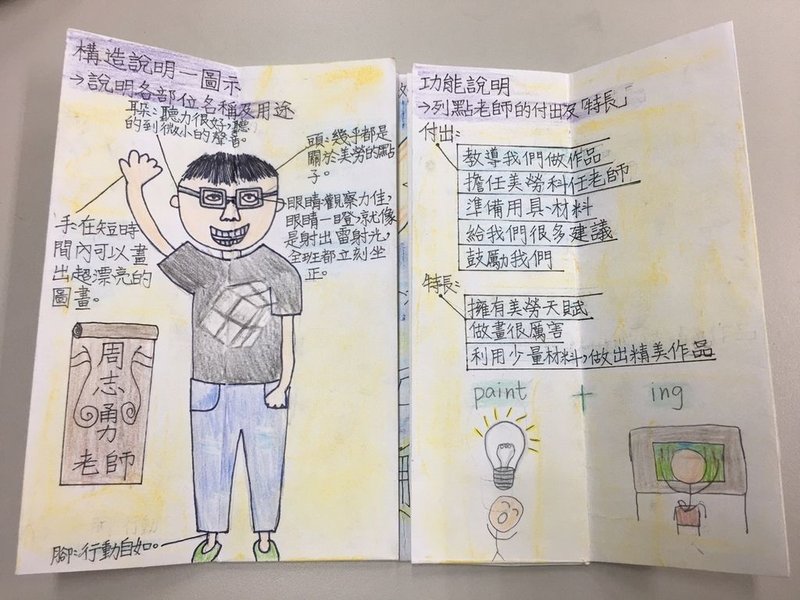 構造說明—圖示
→說明各部位名稱及用途
耳朵:聽力很好,聽
的到微小的聲音。
頭:幾乎都是
關於美勞的點
子。
眼睛:觀察力佳,
眼睛一瞪,就像
是射出雷射光,
全班都立刻坐
正。
手:在短時
間內可以畫
出超漂亮的
圖畫。
周志勇老師
腳:行動自如。
功能說明
→列點老師的付出及「特長」
付出:
教導我們做作品
擔任美勞科任老師
準備用具、材料
給我們很多建議
鼓勵我們
特長:
擁有美勞天賦
做畫很厲害
利用少量材料,做出精美作品
paint + ing